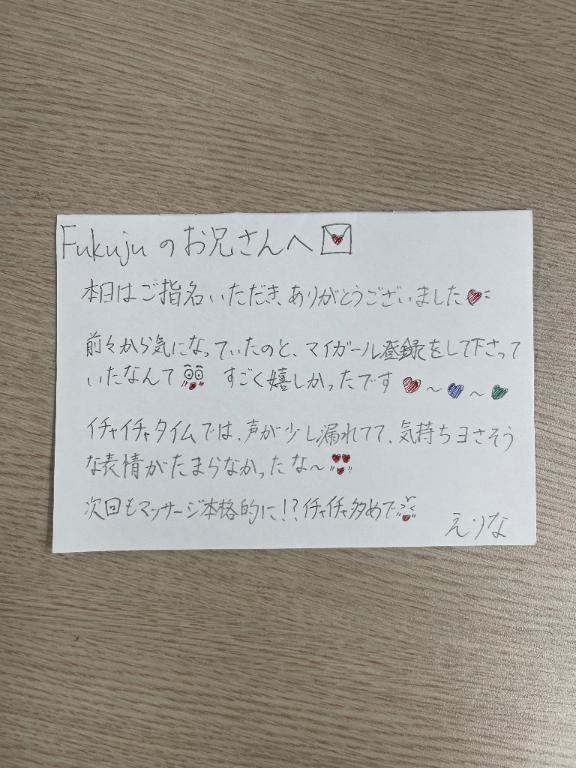 Fukujuのお兄さんへ
本日はご指名いただき、ありがとうございました
前々から気になっていたのと、マイガール登録をして下さって
いたなんて すごく嬉しかったです 〜 〜
イチャイチャタイムでは、声が少し漏れてて、気持ちヨさそう
な表情がたまらなかったな〜
次回もマッサージ本格的に!?イチャイチャ多めで
えりな